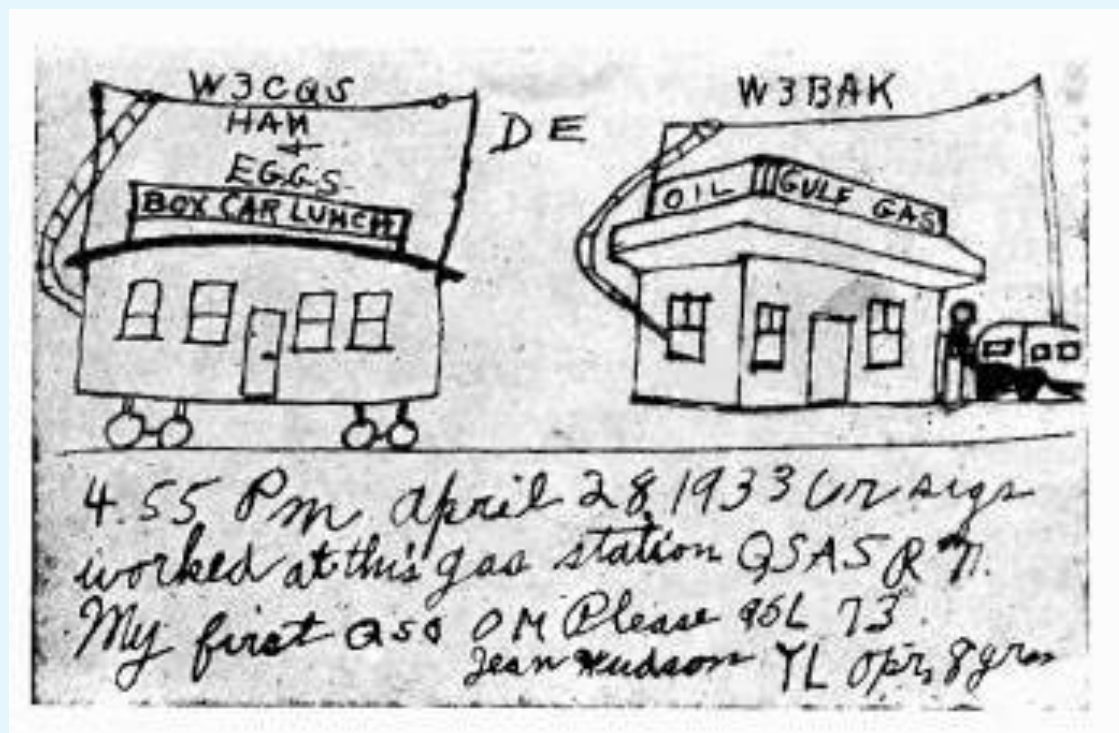 W3CQS
HAM
+
EGGS
BOX CAR LUNCH
DE
W3BAK
OIL GULF GAS
4.55 Pm April 28, 1933 Ur sigs
worked at this gas station QSA5 R 7.
My first QSO OM Please QSL 73
Jean Hudson YL opr, 8 yrs